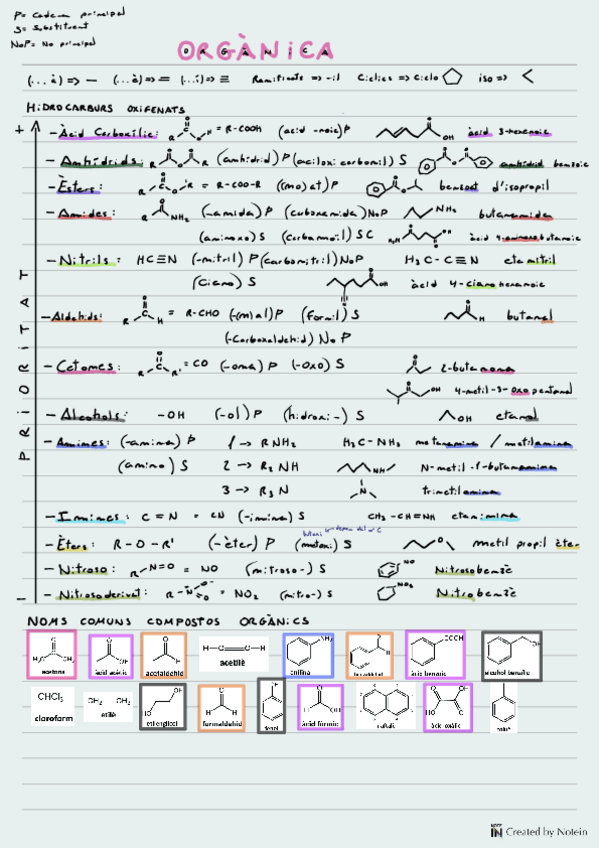 P= Cadena principal
S= Substituent
NoP= No principal
ORGÀNiCA
(...à) => — (...è) => = (...í) => ≡ Ramificats => -il Ciclics => ciclo iso => <
HiDROCARBURS OXiFENATS
+
PRiORiTAT
- Àcid Carboxílic: R O O H = R-COOH (àcid -oic) P OH àcid 3-hexenoic
- Anhídrids: R O O O R (anhídrid) P (aciloxi carbonil) S anhídrid benzoic
- Èsters: R O O R = R-COO-R ((no)at) P benzoat d'isopropil
- Amides: R O NH₂ (-amida) P (carboxamida) NoP NH₂ butanamida
(aminoxo) S (carbamoïl) SC H₂N O O OH àcid 4-aminooxobutanoic
- Nitrils: HC≡N (-nitril) P (carbonitril) NoP H₃C-C≡N etanitril
(Ciano) S OH àcid 4-cianohexanoic
- Aldehids: R O H = R-CHO (-(n)al) P (formil) S H butanal
(-Carboxaldehid) NoP
- Cetones: R O R' = CO (-ona) P (-oxo) S 2-butanona
OH 4-metil-3-oxopentanol
- Alcohols: -OH (-ol) P (hidroxi-) S OH etanol
- Amines: (-amina) P 1 → RNH₂ H₃C-NH₂ metanamina / metilamina
(amino) S 2 → R₂NH NH N-metil-1-butanamina
3 → R₃N N trimetilamina
- Imines: C=N = CN (-imina) S CH₃-CH=NH etanimina
- Èters: R-O-R' (-èter) P (metoxi) S O metil propil èter
- Nitroso: R-N=O = NO (nitroso-) S NO Nitrosobenzè
- Nitrosoderivat: R-N O O = NO₂ (nitro-) S NO₂ Nitrobenzè
-
NOMS COMUNS COMPOSTOS ORGÀNICS
acetona àcid acètic acetaldehid acetilè anilina àcid benzoic alcohol benzílic
CHCl₃ CH₂ CH₂
cloroform etilè etilenglicol formaldehid fenol àcid fòrmic àcid oxàlic
Created by Notein